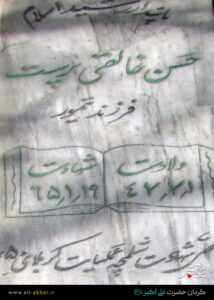 پاسدار شهید اسلام
حسن خالقی زیست
فرزند تیمور
ولادت شهادت
۴۷،۷،۱ ۶۵،۱،۱۹
محل شهادت شلمچه عملیات کربلای ۵
www.ali-akbar.ir
گردان حضرت علی اکبر